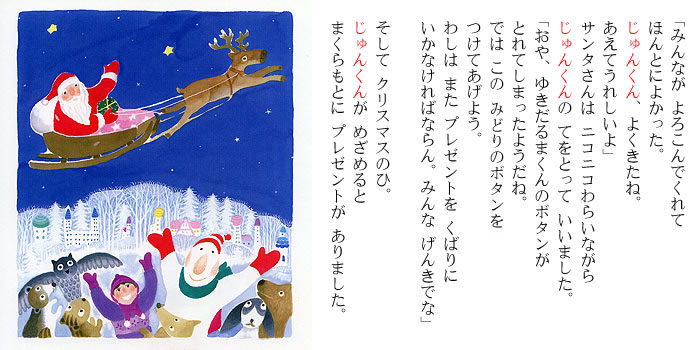 「みんなが よろこんでくれて
ほんとによかった。
じゅんくん、よくきたね。
あえてうれしいよ」
サンタさんは ニコニコわらいながら
じゅんくんの てをとって いいました。
「おや、ゆきだるまくんのボタンが
とれてしまったようだね。
では この みどりのボタンを
つけてあげよう。
わしは また プレゼントを くばりに
いかなければならん。みんな げんきでな」
そして クリスマスのひ。
じゅんくんが めざめると
まくらもとに プレゼントが ありました。